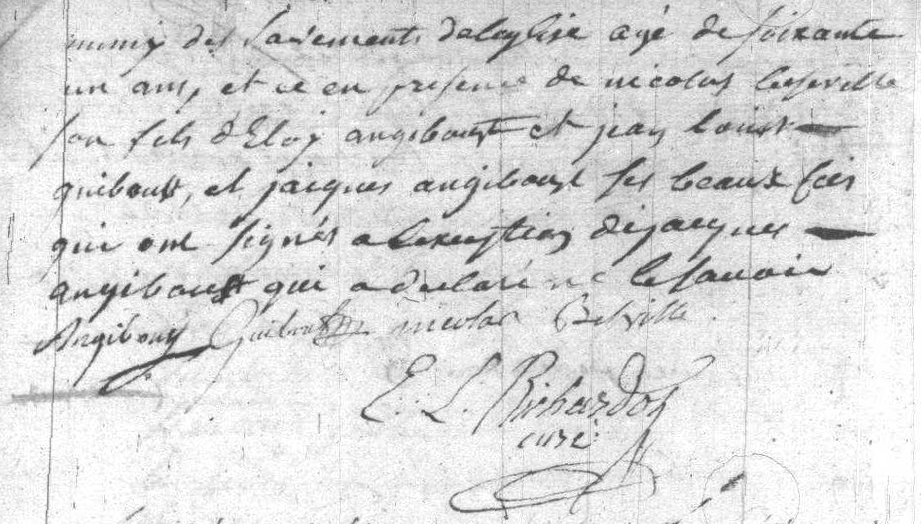 muniy des Sacrements deleglise agé de soixante
un ans, et ce en presence de nicolas
son fils d'Eloy angiboust et jean louis
guiboust, et jacques angiboust ses beaux fils
qui ont signés alexception dejacques
angiboust qui adeclaré ne lesavoir
Angiboust Guiboust nicolas Belville
E. L. Richardot
curé